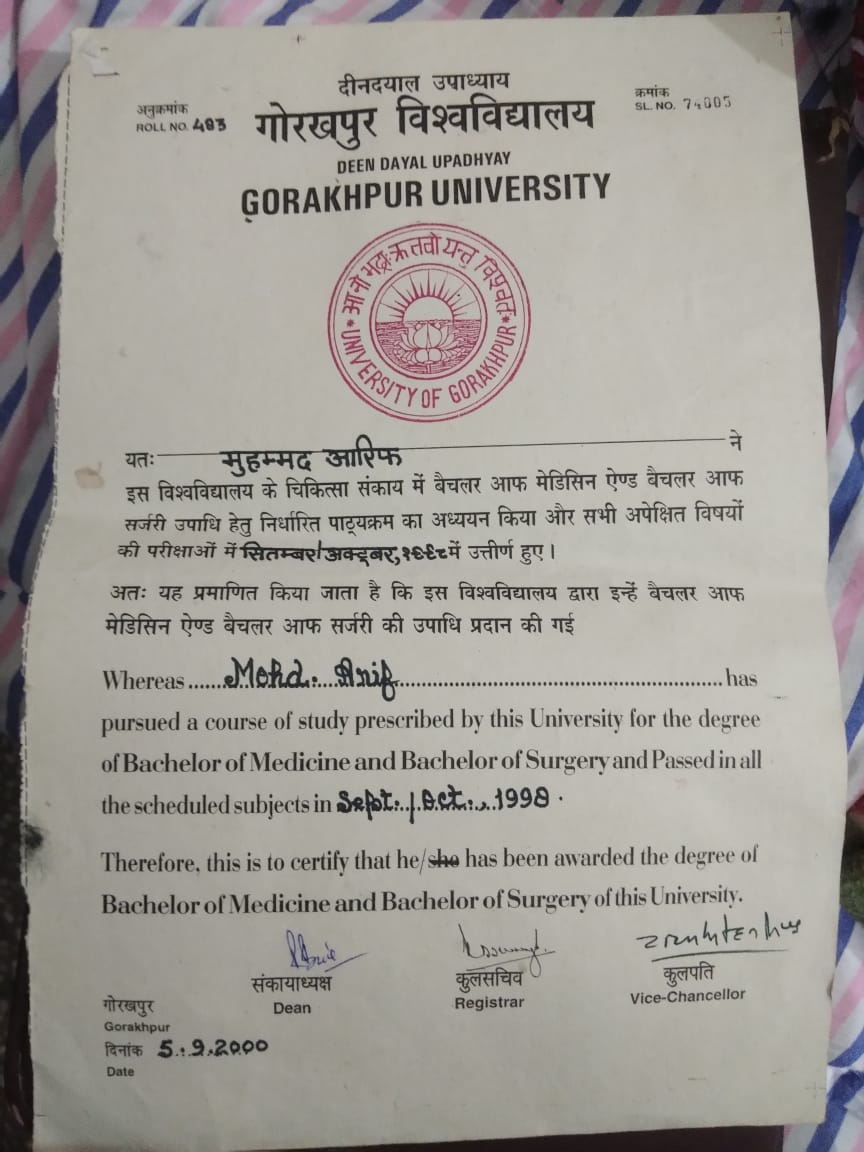 दीनदयाल उपाध्याय
अनुक्रमांक
ROLL NO. 483
गोरखपुर विश्वविद्यालय
क्रमांक
SL. NO. 74005
DEEN DAYAL UPADHYAY
GORAKHPUR UNIVERSITY
आ नो भद्राः क्रतवो यन्तु विश्वतः
UNIVERSITY OF GORAKHPUR
यतः मुहम्मद आरिफ ने
इस विश्वविद्यालय के चिकित्सा संकाय में बैचलर आफ मेडिसिन ऐण्ड बैचलर आफ
सर्जरी उपाधि हेतु निर्धारित पाठ्यक्रम का अध्ययन किया और सभी अपेक्षित विषयों
की परीक्षाओं में सितम्बर/अक्टूबर, १९९८ में उत्तीर्ण हुए।
अतः यह प्रमाणित किया जाता है कि इस विश्वविद्यालय द्वारा इन्हें बैचलर आफ
मेडिसिन ऐण्ड बैचलर आफ सर्जरी की उपाधि प्रदान की गई
Whereas ......Mohd. Arif.......................................................... has
pursued a course of study prescribed by this University for the degree
of Bachelor of Medicine and Bachelor of Surgery and Passed in all
the scheduled subjects in Sept. / Oct., 1998.
Therefore, this is to certify that he/she has been awarded the degree of
Bachelor of Medicine and Bachelor of Surgery of this University.
संकायाध्यक्ष
Dean
कुलसचिव
Registrar
कुलपति
Vice-Chancellor
गोरखपुर
Gorakhpur
दिनांक 5.9.2000
Date